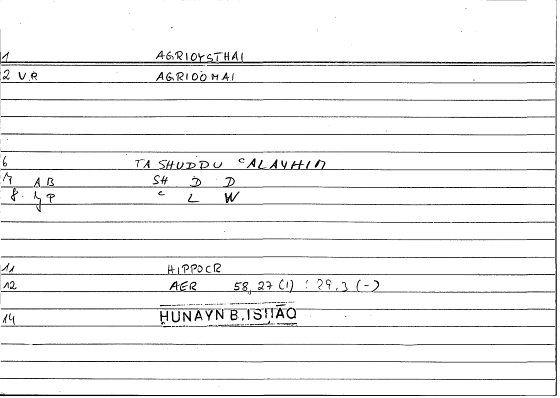 1 AGRIOYSTHAI
2 V.R AGRIOOMAI
6 TASHUDDU ʿALAYHIM
7 AB SH D D
8. ʿ L W
11 HIPPOCR
12 AER 58, 27 (1) : 29, 3 (-)
14 ḤUNAYN B. ISḤĀQ